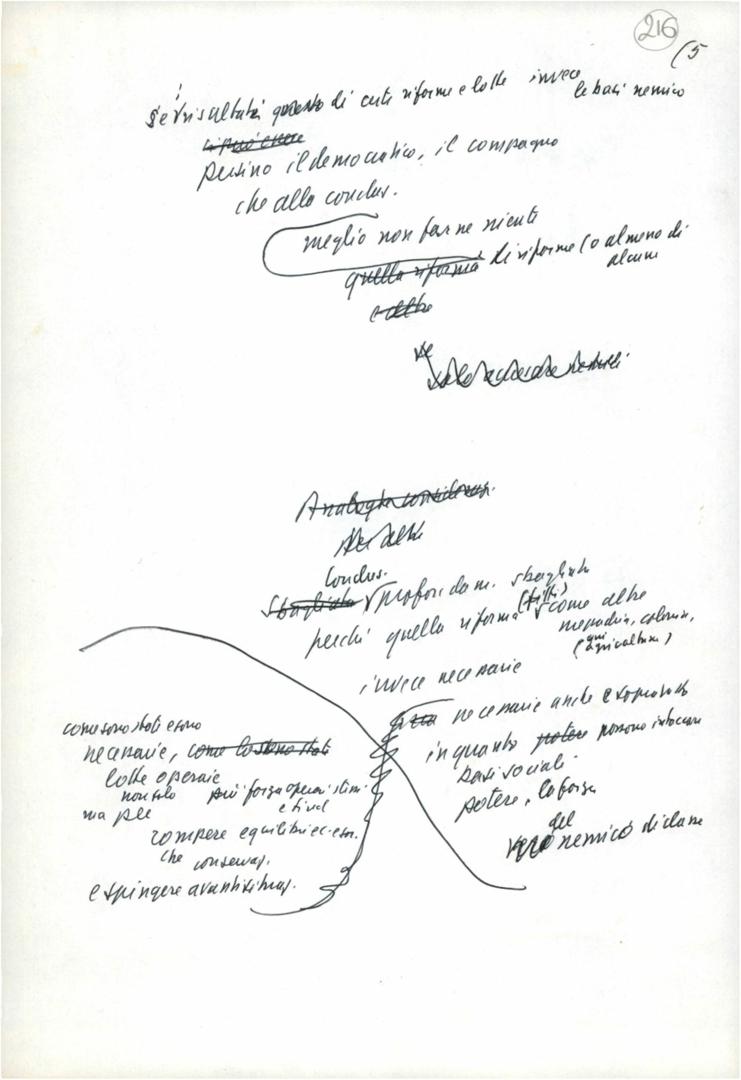 216
(5
se risultati di certe riforme e lotte invece le basi nemico
persino il democratico, il compagno
che alla conclus.
meglio non farne niente
quella riforma di riforme (o almeno di
alcune
e altre
Analoghe consideraz.
Conclus.
Sbagliata profondam. sbagliata
perché quella riforma (fitti) come altre
mezzadria, colonia,
(qui agricoltura)
invece necessarie
necessarie anche e soprattutto
in quanto potere possono intaccare
basi sociali
potere, la forza
del
vero nemico di classe
come sono stati e sono
necessarie, come lo sono stati
lotte operaie
non solo più forza operai stim.
e sind
ma per
rompere equilibri ec.
che conservaz.
e spingere avanti